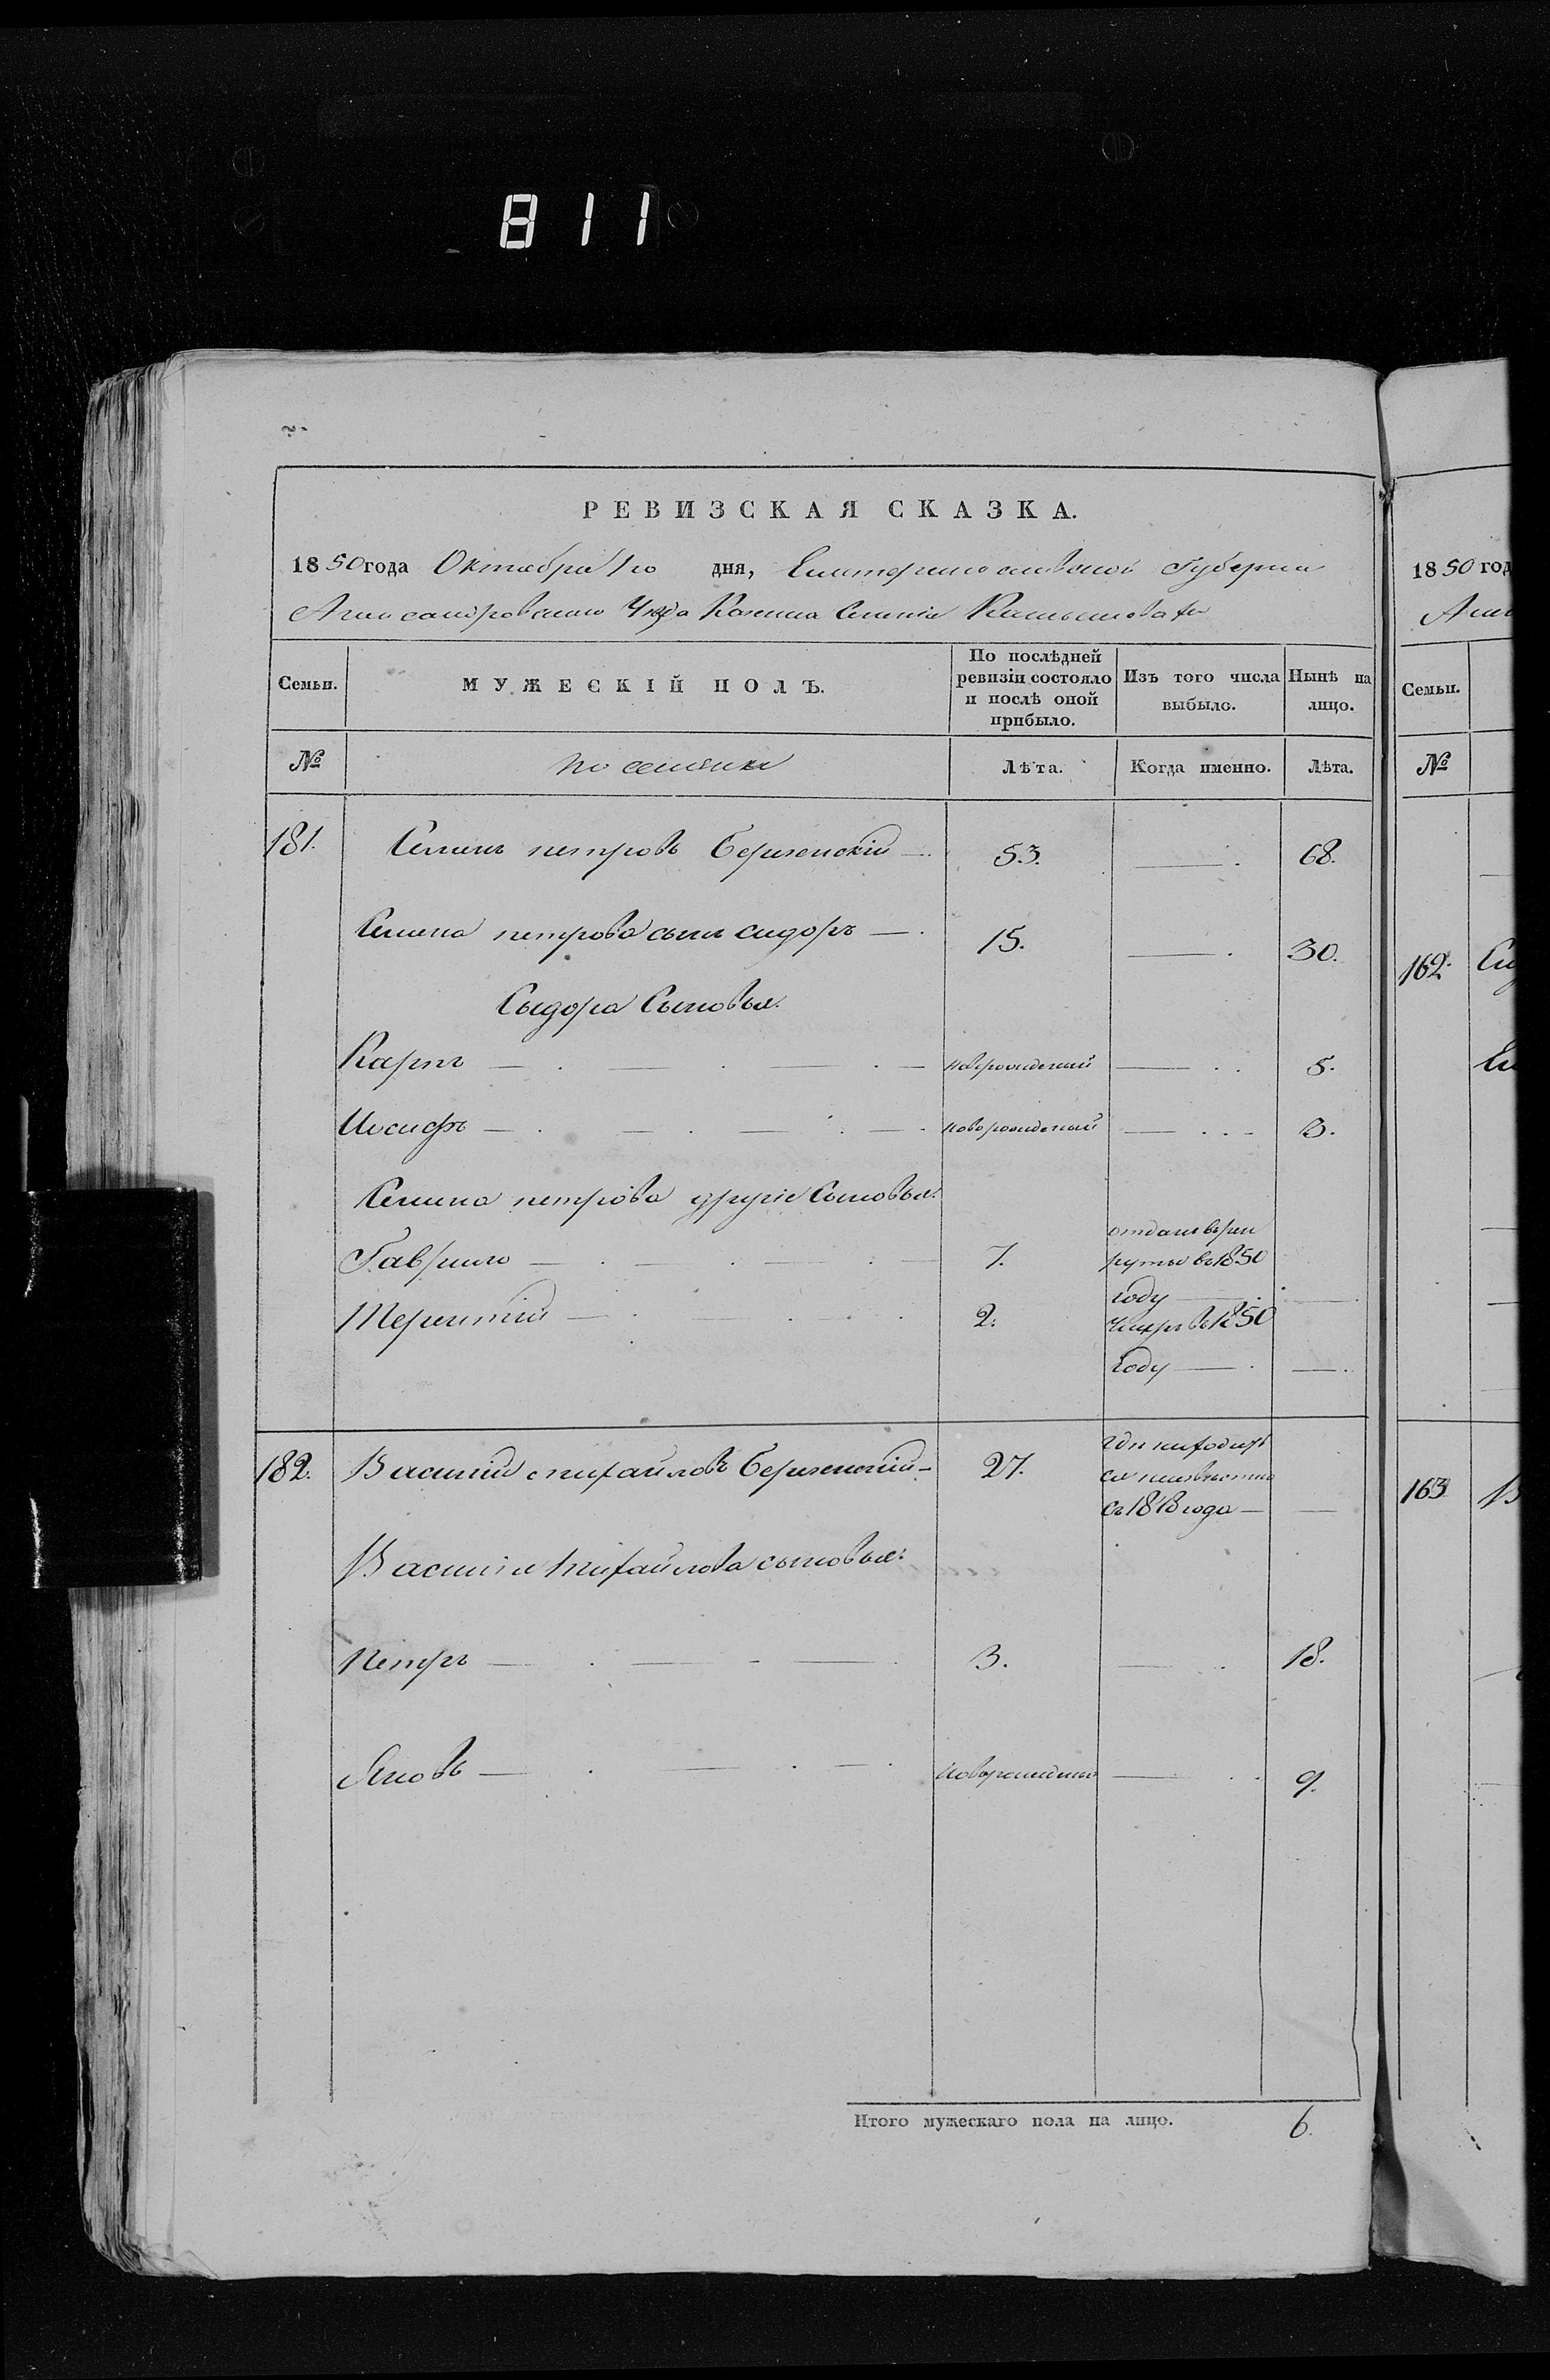 811
РЕВИЗСКАЯ СКАЗКА.
1850 года Октября 1го дня, Екатеринославской Губерніи
Александровскаго Уѣзда Казенна Селенія Камышевата
Семьи. МУЖЕСКІЙ ПОЛЪ. По послѣдней ревизіи состояло и послѣ оной прибыло. Изъ того числа выбыло. Нынѣ на лицо.
№ Лѣта. Когда именно. Лѣта.
181. Семенъ петровъ Береженскій — 53. — 68.
Семена петрова сынъ сидоръ — 15. — 30.
Сыдора Сыновья.
Карпъ — новорожденый — 5.
Иосифъ — новорожденый — 3.
Семена петрова другіе Сыновья:
Гаврило — 7. отданъ врек
руты въ 1850
году —
Терентій — 2. Умеръ въ 1850
году —
182. Василій михайловъ Береженскій — 27. гдѣ находит
ся неизвѣстно
съ 1848 года —
Василія михайлова сыновья:
Петръ — 3. — 18.
Яковъ — новорожденый — 9.
Итого мужескаго пола на лицо. 6.
1850 год
Семьи.
№
162.
163